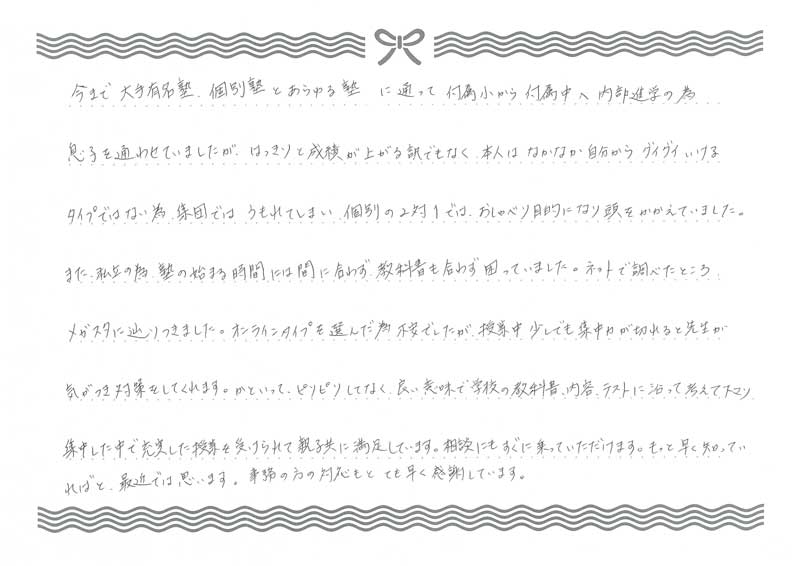 今まで 大手有名塾、個別塾とあらゆる塾 に通って 付属小から付属中へ内部進学の為
息子を通わせていましたが、はっきりと成績が上がる訳でもなく、本人は なかなか自分から グイグイいける
タイプではない為、集団では うもれてしまい、個別の2対1では、おしゃべり目的になり頭をかかえていました。
また、私立の為、塾の始まる時間には間に合わず、教科書も合わず困っていました。ネットで調べたところ、
メガスタに辿りつきました。オンラインタイプを選んだ為 不安でしたが、授業中 少しでも集中力が切れると先生が
気がつき対策をしてくれます。かといって、ピリピリしてなく、良い意味で学校の教科書、内容、テストに沿って考えて下さり
集中した中で充実した授業を受けられて親子共に満足しています。相談にもすぐに乗っていただけます。もっと早く知ってい
ればと、最近では思います。事務の方の対応もとても早く感謝しています。